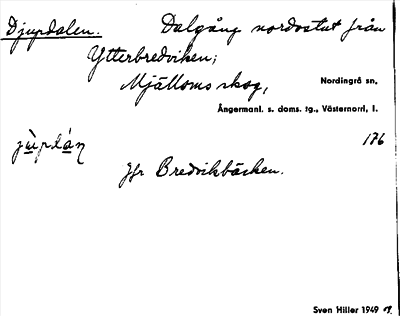 Djupdalen. Dalgång nordostut från
Ytterbredviken;
Mjälloms skog, Nordingrå sn,
Ångermanl. s. doms. tg., Västernorrl, l.
jùpdán 176
Jfr Bredvikbäcken.
Sven Hiller 1949